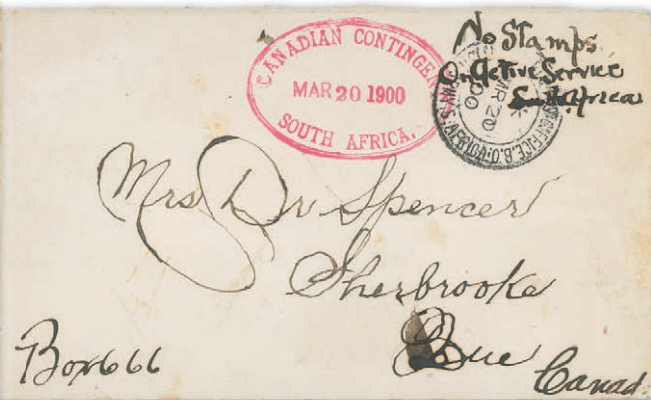 CANADIAN CONTINGEN
MAR 20 1900
SOUTH AFRICA.
No Stamps
On Active Service
South Africa
MR 20
00
Mrs Dr Spencer
Sherbrooke
Que
Canad
Box 666